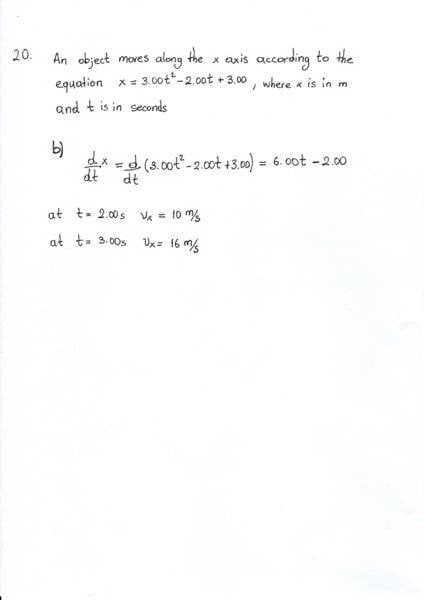 20. An object moves along the x axis according to the
equation x = 3.00t² - 2.00t + 3.00, where x is in m
and t is in seconds
b)
d/dt x = d/dt (3.00t² - 2.00t + 3.00) = 6.00t - 2.00
at t = 2.00s vx = 10 m/s
at t = 3.00s vx = 16 m/s